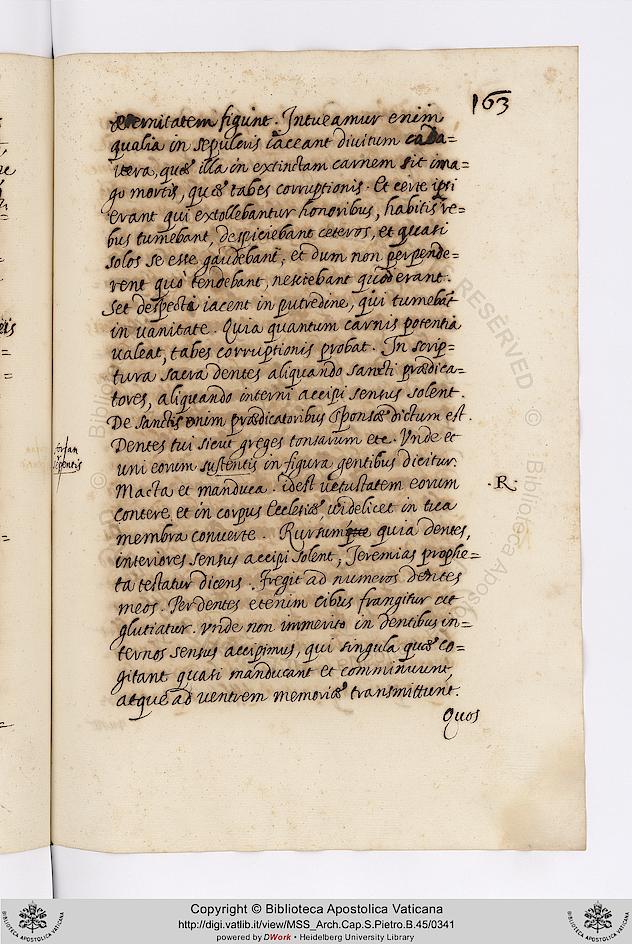 163
æternitatem figunt. Intueamur enim
qualia in sepulcris iaceant diuitum cada=
uera, quæ illa in extinctam carnem sit ima=
go mortis, quæ tabes corruptionis. Et certe ipsi
erant qui extollebantur honoribus, habitis re=
bus tumebant, despiciebant ceteros, et quasi
solos se esse gaudebant, et dum non perpende=
rent quò tendebant, nesciebant quod erant.
Set despecta iacent in putredine, qui tumebāt
in uanitate. Quia quantum carnis potentia
ualeat, tabes corruptionis probat. In scrip=
tura sacra dentes aliquando sancti prædica=
tores, aliquando interni accipi sensus solent.
De sanctis enim prædicatoribus sponsæ dictum est.
Dentes tui sicut greges tonsarum etc. Vnde et
uni eorum sustentis in figura gentibus dicitur.
Macta et manduca. idest uetustatem eorum
contere et in corpus Ecclesiæ uidelicet in tua
membra conuerte. Rursum quia dentes,
interiores sensus accipi solent, Jeremias prophe=
ta testatur dicens. Fregit ad numeros dentes
meos. Per dentes etenim cibus frangitur ut
glutiatur. Vnde non immerito in dentibus in=
ternos sensus accipimus, qui singula quæ co=
gitant quasi manducant et comminuunt,
atque ad uentrem memoriæ transmittunt.
Quos
.R.
Copyright © Biblioteca Apostolica Vaticana
http://digi.vatlib.it/view/MSS_Arch.Cap.S.Pietro.B.45/0341
powered by DWork • Heidelberg University Library